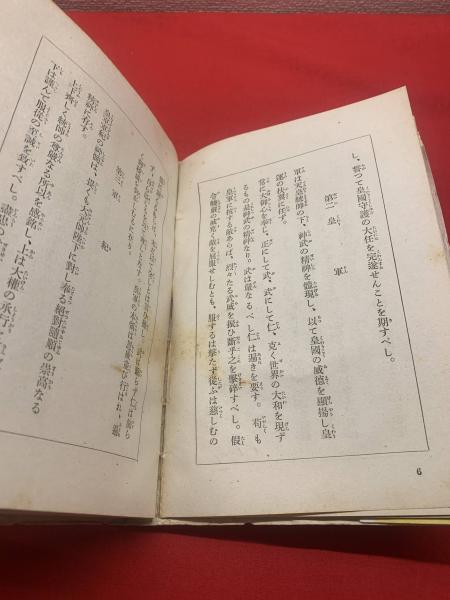 し、誓つて皇國守護の大任を完遂せんことを期すべし。
第二 皇軍
軍は天皇統帥の下、神武の精神を體現し、以て皇國の威德を顯揚し皇
運の扶翼に任ず。
常に大御心を奉じ、正にして武、武にして仁、克く世界の大和を現ず
るもの是神武の精神なり。武は嚴なるべし仁は遍きを要す。苟も
皇軍に抗する敵あらば、烈々たる武威を振ひ斷乎之を擊碎すべし。假
令峻嚴の威克く敵を屈服せしむとも、服するは擊たず從ふは慈しむの
6
武は驕らず仁は飾ら
皇軍の本領は恩威並び行はれ、遍
第三 軍紀
皇軍軍紀の神髓は、畏くも大元帥陛下に對し奉る絶對隨順の崇高なる
精神に存す。
上下齊しく統帥の尊嚴なる所以を感銘し、上は大權の承行を
下は謹んで服從の至誠を致すべし。盡忠の